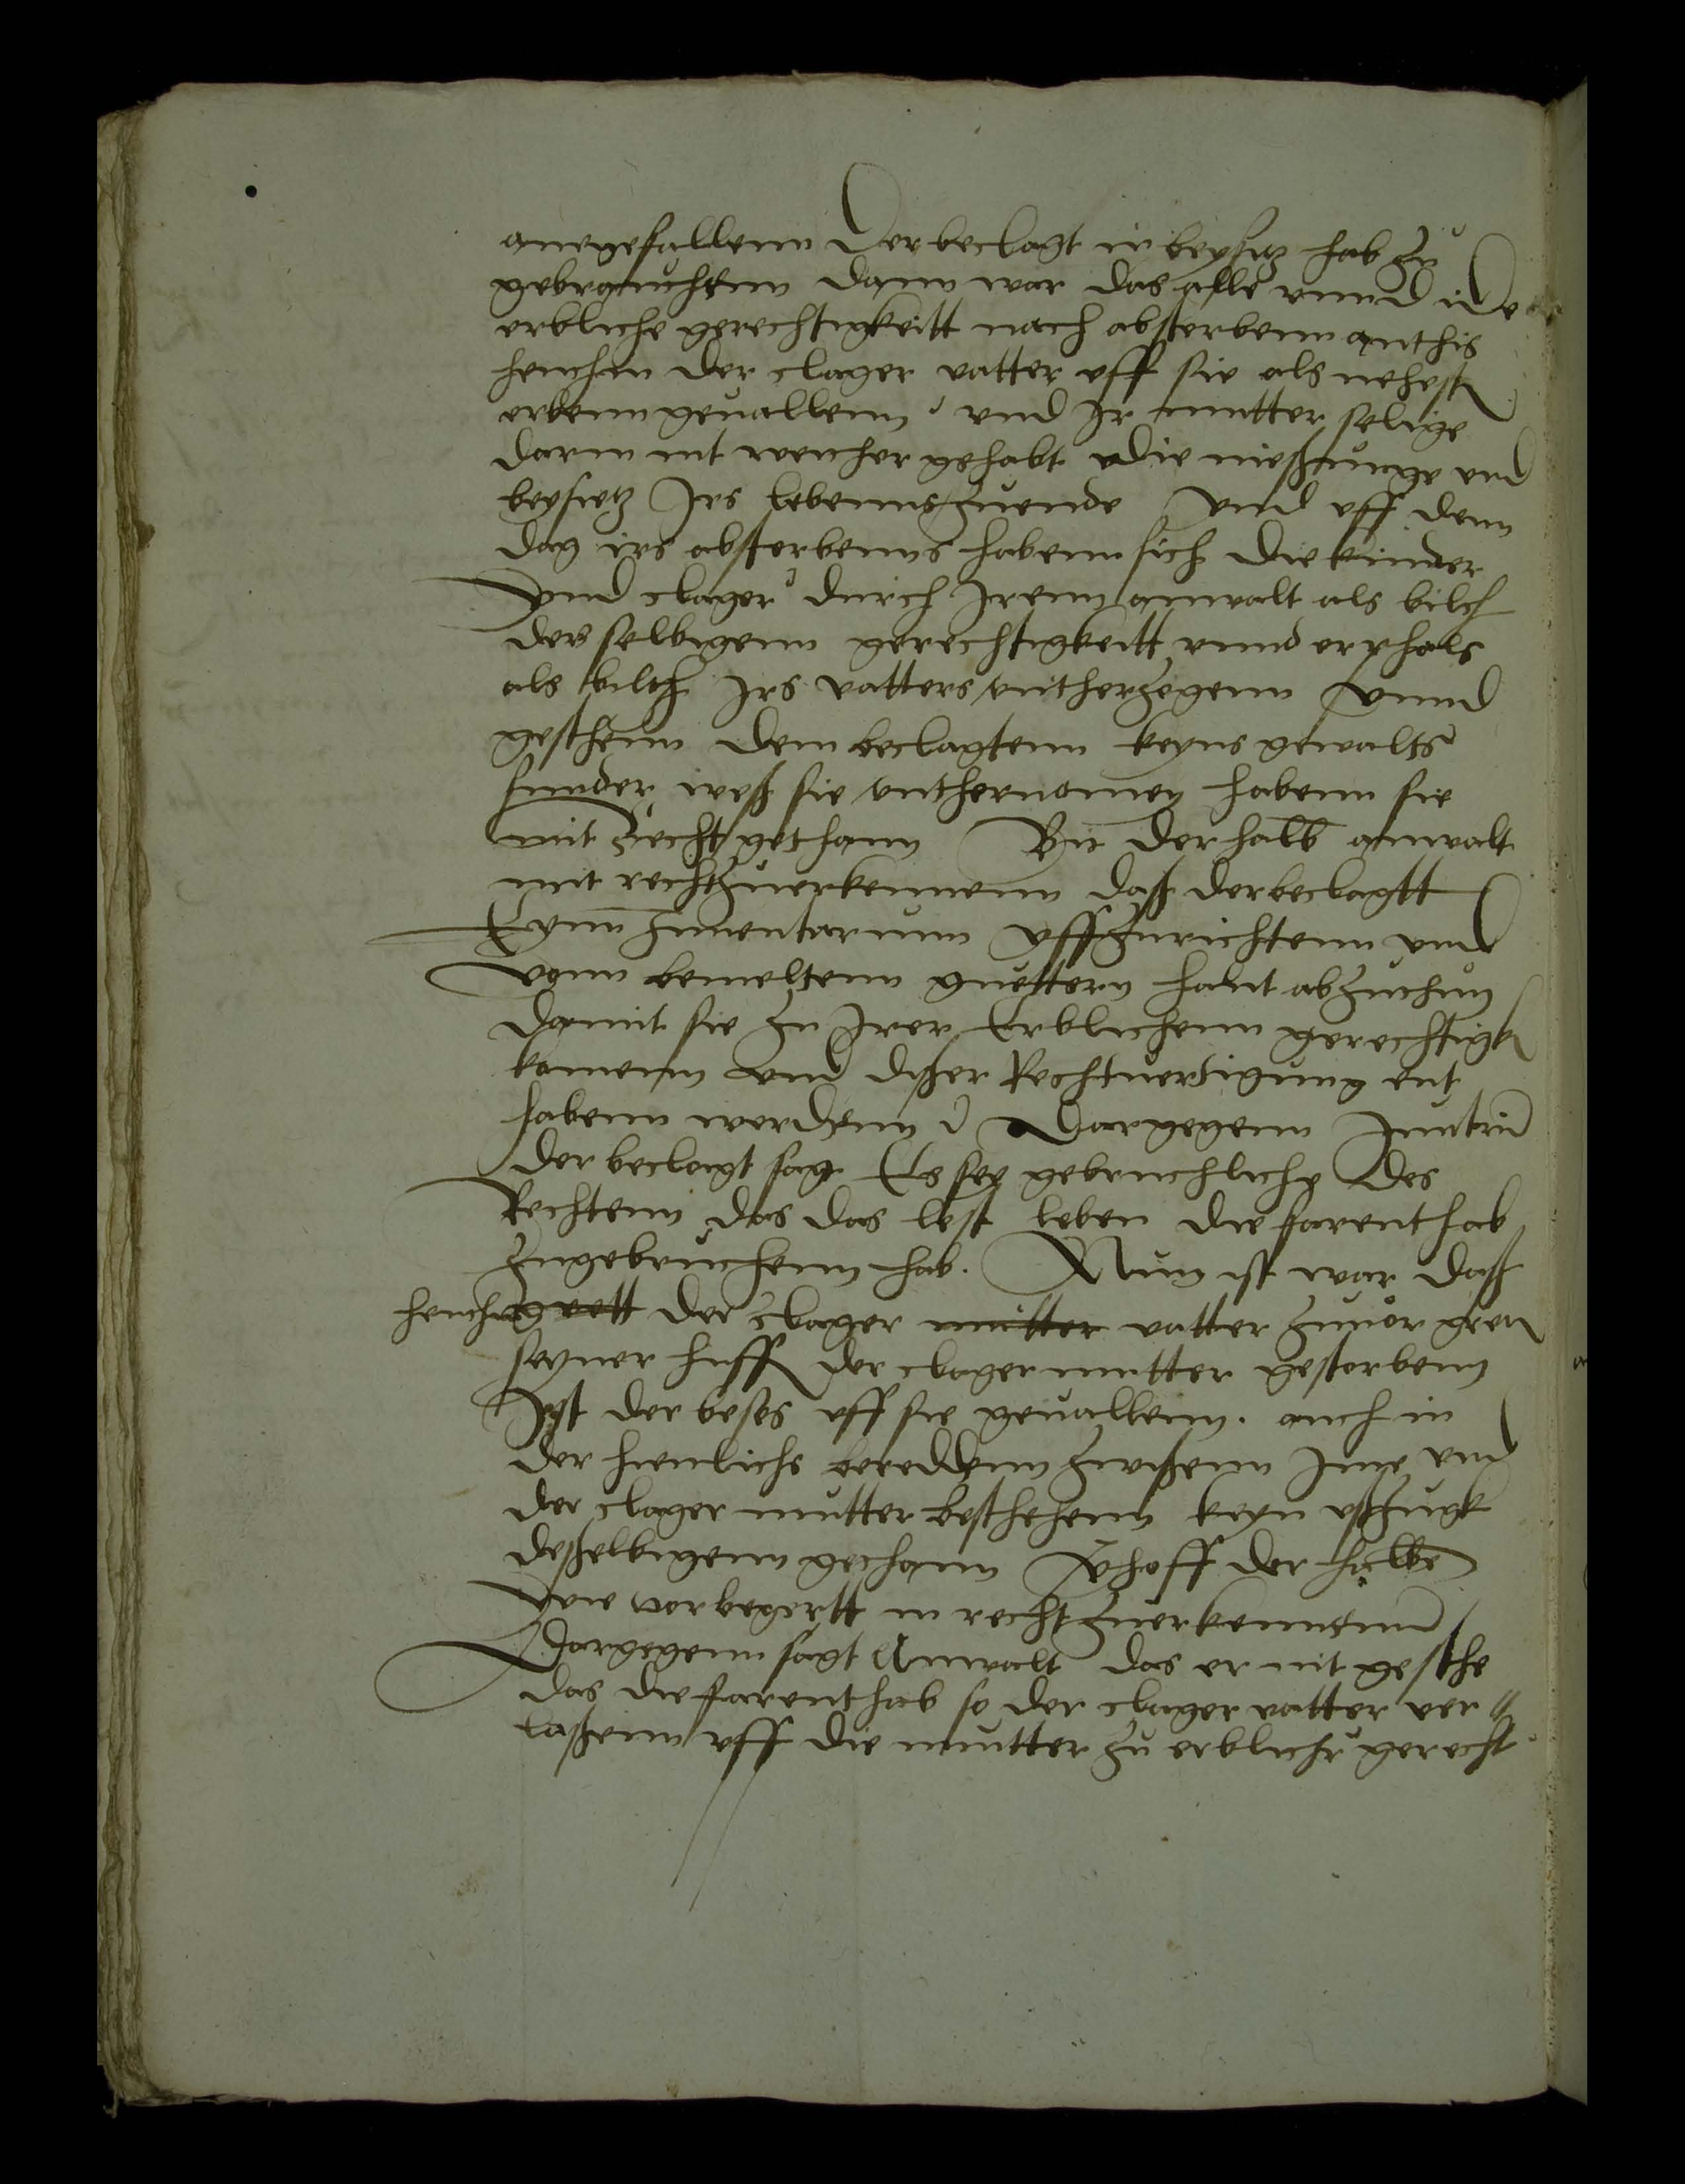 anegefallenn der beclagt in beysytz hab zu
gebrauchenn dann war das alle vnnd ide
erbliche gerechtigkeitt nach absterbenn
henchen der clager vatter vff sie als nehest
erbenn geuallenn vnd Ir mutter selige
darin nit weither gehabt die nießunge vnd
beysietz Irs lebenns zuende vnd vff denn
dag irs absterbenns habenn sich die kinder
Vnd clager durch Irenn anwalt als bilch
der selbigenn gerechtigkeitt vnnd erbhals
als bilch Irs vatters vntherzogenn vnnd
gesthenn dem beclagtenn keyns gewalts
sunder weß sie vnthernomen habenn sie
mit recht gethann Bit der halb anwalt
mit recht zuerkennenn daß der beclagtt
Eynn Inuentarium vffzurichtenn vnd
vonn bemeltenn guettern hant abzuthun
damit sie zu Irer Erblichenn gerechtigk
komenn vnd dißer Rechtuertigung ent
habenn werdenn Dargegenn
der beclagt sag Es sey gebruchlich des
Rechtenn das das lest leben die farent hab
zugebruchenn hab. Nun ist war daß
henchen der clager mutter vatter zuuor
seyner huff der clager mutter gestorbenn
Ist der beses vff sie geuallenn. auch in
der heulichs bereddenn zwißenn Ime vnd
der clager mutter besthehenn keyn vßzugk
deßelbigenn gethann Verhofft der halbe
wie vor begertt in recht zuerkennenn
Dargegenn sagt Anwalt das er nit gesthe
das die farent hab so der clager vatter ver
laßenn vff die mutter zu erblich gerecht